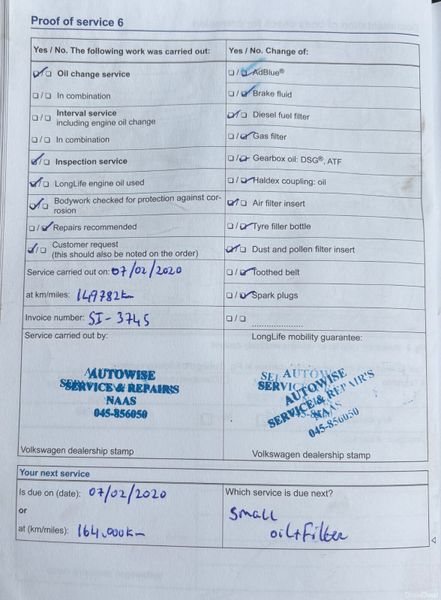 Proof of service 6
Yes / No. The following work was carried out:
Yes / No. Change of:
Oil change service
AdBlue®
In combination
Brake fluid
Interval service
including engine oil change
Diesel fuel filter
In combination
Gas filter
Inspection service
Gearbox oil: DSG®, ATF
LongLife engine oil used
Haldex coupling: oil
Bodywork checked for protection against cor-
rosion
Air filter insert
Repairs recommended
Tyre filler bottle
Customer request
(this should also be noted on the order)
Dust and pollen filter insert
Service carried out on: 07/02/2020
Toothed belt
at km/miles: 149782km
Spark plugs
Invoice number: SI-3745
Service carried out by:
LongLife mobility guarantee:
AUTOWISE
SERVICE & REPAIR'S
NAAS
045-856050
AUTOWISE
SERVICE & REPAIR'S
NAAS
045-856050
Volkswagen dealership stamp
Volkswagen dealership stamp
Your next service
Is due on (date): 07/02/2020
Which service is due next?
or
Small
at (km/miles): 164.000km
oil+filter